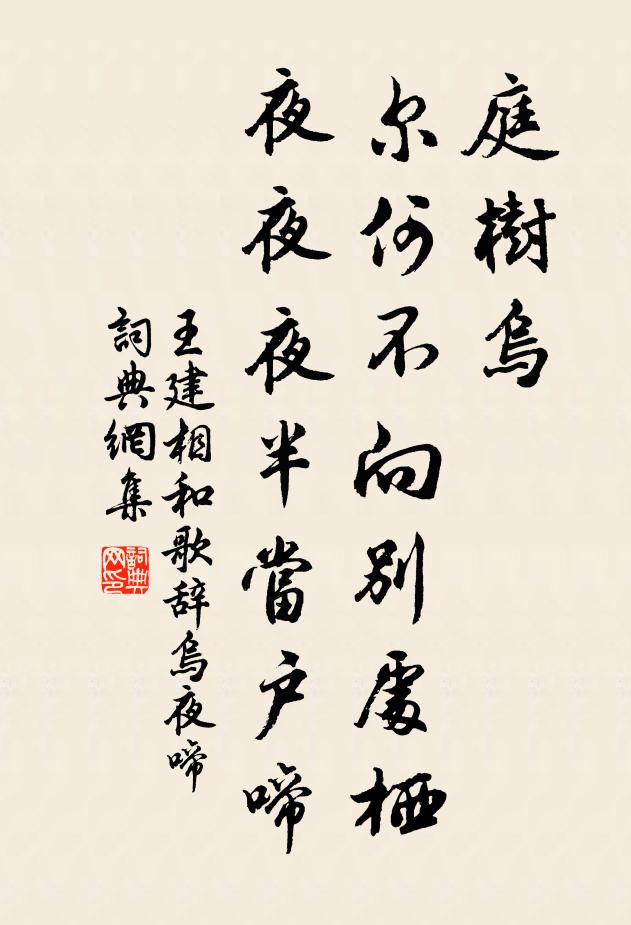 庭樹烏
尔何不向別處栖
夜夜夜半當户啼
王建相和歌辞烏夜啼
詞典網集
詞典网印